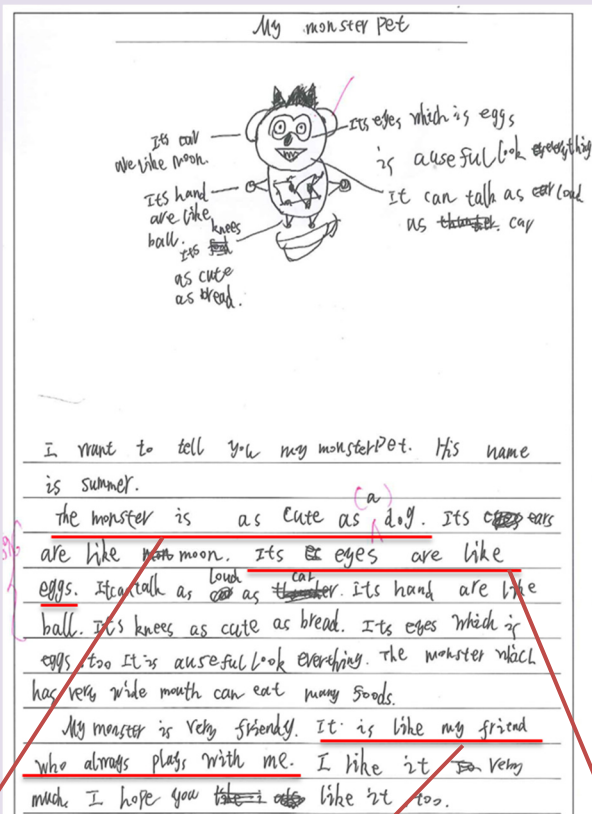 My monster pet
Its ear
are like moon.
Its hand
are like
ball.
Its knees
as cute
as bread.
Its eyes which is eggs
is auseful look everything
It can talk as loud
as car
I want to tell you my monsterpet. His name
is summer.
The monster is as cute as (a) dog. Its ears
are like moon. Its eyes are like
eggs. It can talk as loud as car. Its hand are like
ball. It's knees as cute as bread. Its eyes which is
eggs too It is auseful look everthing. The monster which
has very wide mouth can eat many foods.
My monster is very friendly. It is like my friend
who always plays with me. I like it very
much. I hope you like it too.